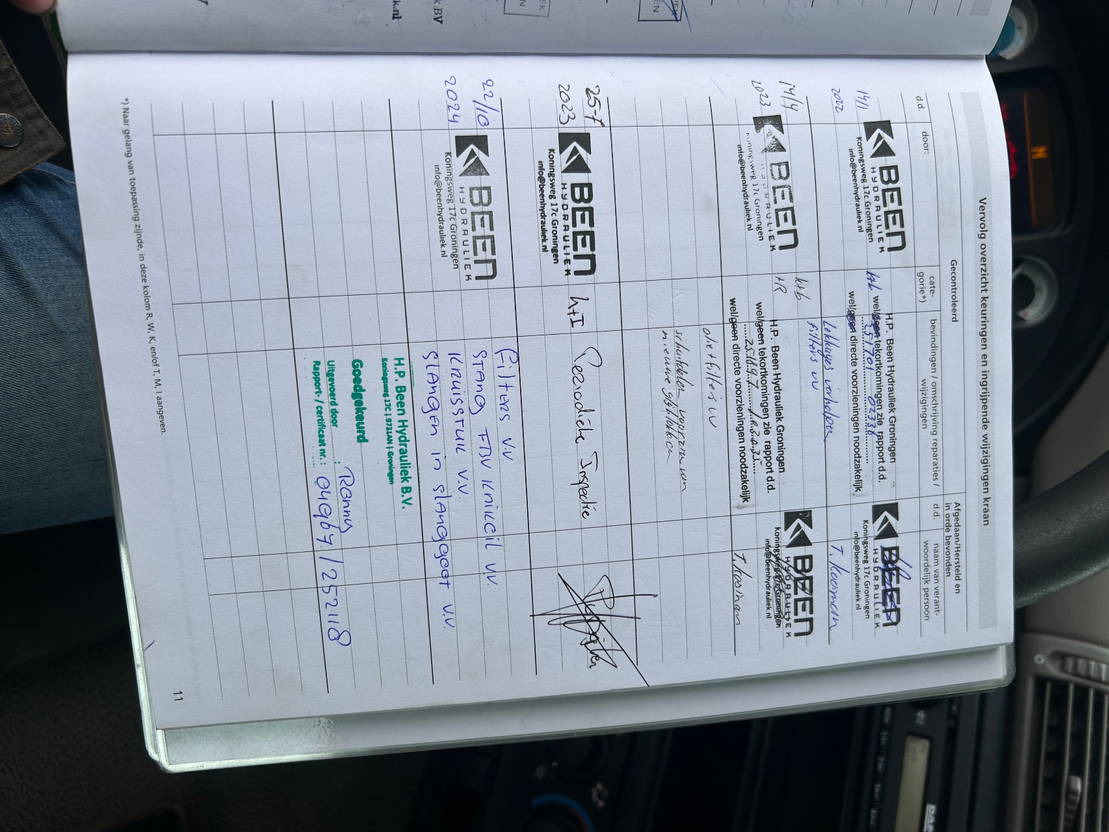 Vervolg overzicht keuringen en ingrijpende wijzigingen kraan
Gecontroleerd
Afgedaan/Hersteld en in orde bevonden
d.d.
door:
cate-
gorie*)
bevindingen / omschrijving reparaties /
wijzigingen
d.d.
naam van verant-
woordelijk persoon
14/1
2022
BEEN
HYDRAULIEK
Koningsweg 17c Groningen
info@beenhydrauliek.nl
H.P. Been Hydrauliek Groningen
wel/geen tekortkomingen zie rapport d.d.
wel/geen directe voorzieningen noodzakelijk
Lekkages verholpen
Filters vv
BEEN
HYDRAULIEK
Koningsweg 17c Groningen
info@beenhydrauliek.nl
T. Kooman
14/4
2023
BEEN
HYDRAULIEK
Koningsweg 17c Groningen
info@beenhydrauliek.nl
H.P. Been Hydrauliek Groningen
wel/geen tekortkomingen zie rapport d.d.
wel/geen directe voorzieningen noodzakelijk
oliefilters vv
nieuwe
BEEN
HYDRAULIEK
Koningsweg 17c Groningen
info@beenhydrauliek.nl
T. Kooman
25-7
2023
BEEN
HYDRAULIEK
Koningsweg 17c Groningen
info@beenhydrauliek.nl
h+I
Periodieke Inspectie
22/10
2024
BEEN
HYDRAULIEK
Koningsweg 17c Groningen
info@beenhydrauliek.nl
Filters v.v
STANG TBV KNIKCIL vv.
KRUISSTUK v.v
Slangen in slanggoot v.v
H.P. Been Hydrauliek B.V.
Koningsweg 17C | 9731AN | Groningen
Goedgekeurd
Uitgevoerd door : Ronny
Rapport- / certificaat nr. : 040967/252118
*) Naar gelang van toepassing zijnde, in deze kolom R, W, K, en/of T, M, I aangeven.
11